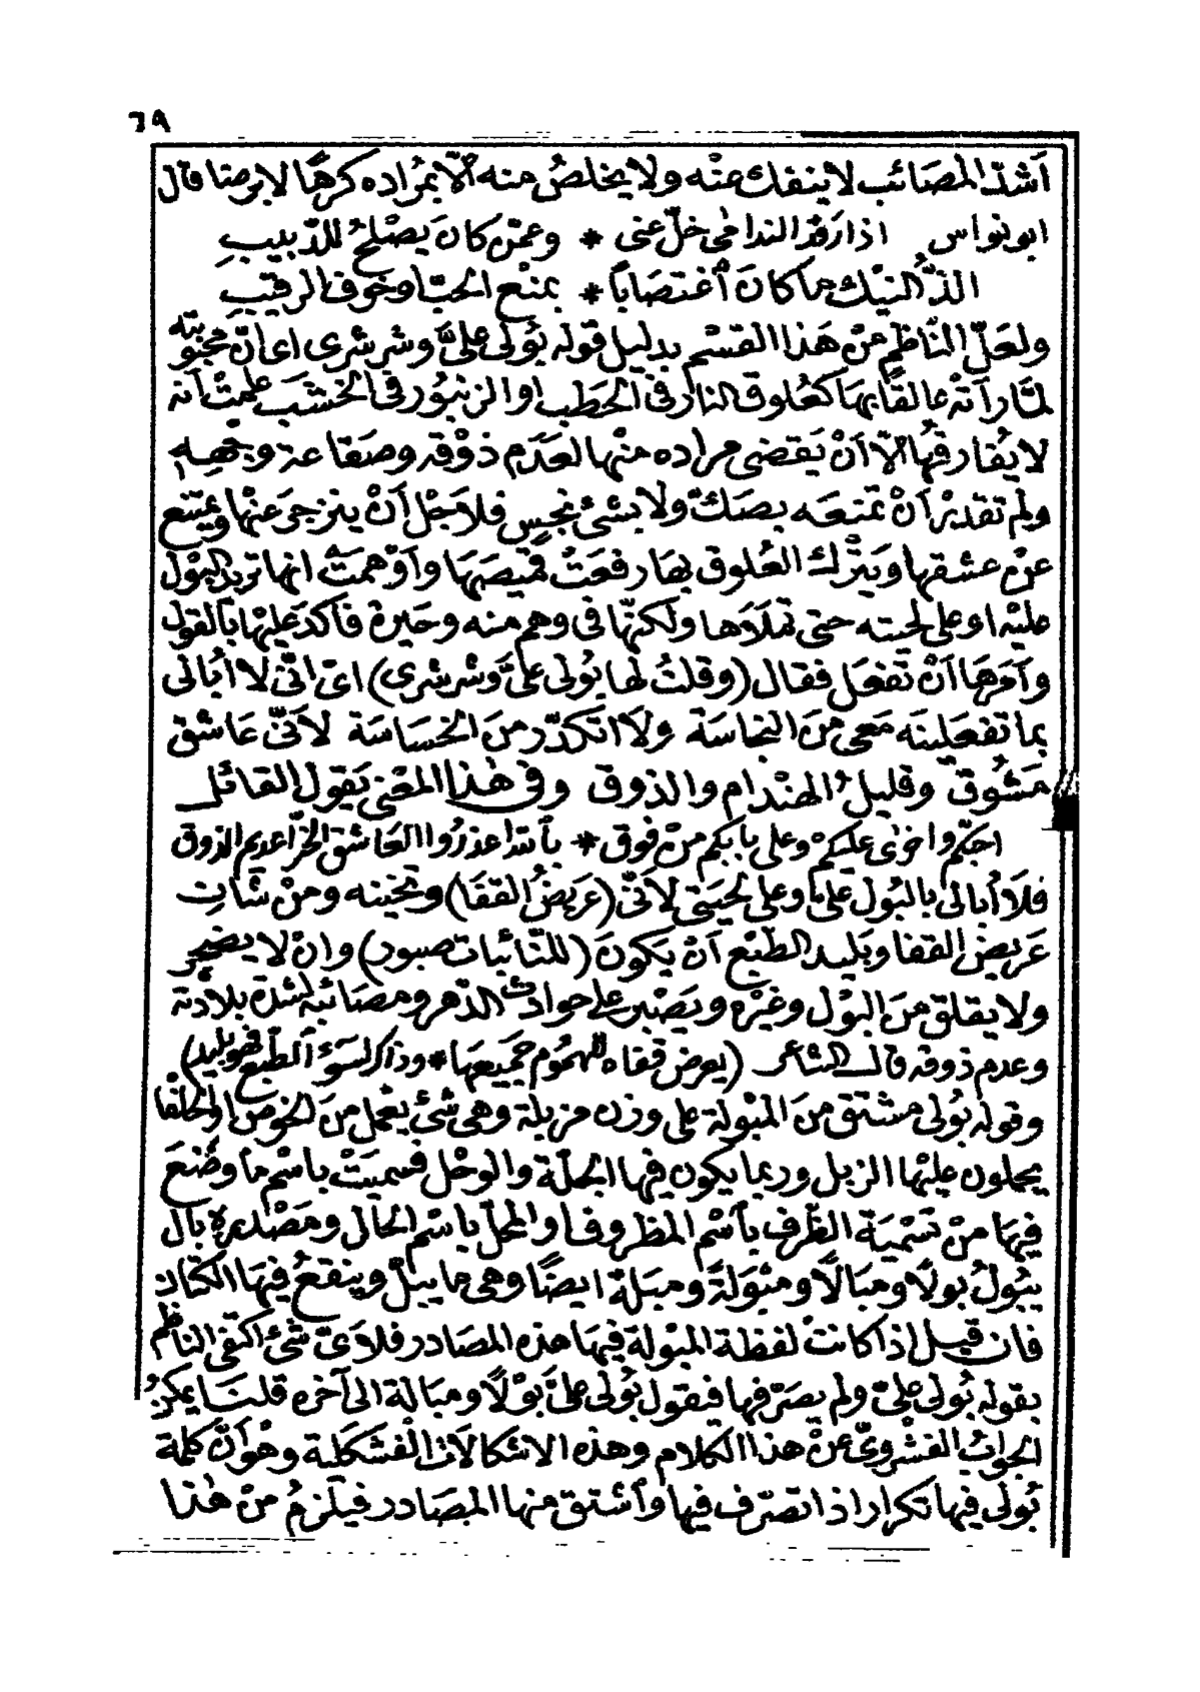 ٦٩
أشدّ المصائب لا ينفك عنه ولا يخلصُ منه الّا بمُراده كرهًا لا برضا قال
ابو نواس اذا رقد الندامى خلّ عنى * وعمّن كان يَصْلحُ للدّبيبِ
الذُّ النيك ما كانَ أغتصاباً * بمنع الحبّ او خوف الرقيبِ
ولعَلّ النّاظم منْ هَذا القسْم بدليل قوله بُولى علىَّ وشرشرى اى انّ محبُوبته
لمّا رأتْه عالقًا بهَا كعُلوق النار فى الحَطب او الزنبُور فى الخشَب علمتْ أنه
لا يُفارقهُا الّا أنْ يَقضى مراده منْها لعَدَم ذوْقه وصَقاعة وجْههِ
ولم تقدرْ أنْ تمنعَه بصَكّ ولا بشئ نجسٍ فلاَجْل أنْ ينزجى عنْها ويمتنع
عنْ عشقها ويَتْرك العُلوق بهَا رفعَتْ قميصَهَا وأوْهمَتْ انها تريد البَوْل
عليْه او على لحيته حتى تملَأها ولكنّها فى وهم منه وحَيرة فأكدَ عليْها بالقول
وأمَرهَا أنْ تفعَل فقال (وقلتُ لها بُولى علىَّ وشرشرى) اىْ انّى لا أُبالى
بما تفعَلينَه مَعى منَ النجاسَة ولَا اتكدّر منَ الخسَاسَة لأَنّى عَاشق
مَشُوق وقليلُ الهنْدام والذوق وفى هٰذا المعْنى يَقول القائل
احبّكم واخرٰى عليكمْ وعلى بابكم منْ فوق * بأبتدا عذرُوا العَاشق الخرّا عديم الذوق
فلَا أُبالى بالبُول علىّ وعلى لحيَتى لأنّى (عَريضُ القفَا) وتخينه ومنْ شأنِ
عَريض القفا وبَليد الطبْع أنْ يَكونَ (للنّائبات صبور) وانْ لا يضجر
ولا يقلق منَ البَوْل وغيْره ويَصْبر على حوادث الدّهر ومصَائبه لشدّة بلَادَتة
وعدم ذوقه قال الشاعر (يعرض قفاه للهمُوم جميعهَا * وذاك لسَوء الطبع فهو بليد)
وقوله بُولى مشتق منَ المبْولة على وزن مزبلة وهى شئ يعْمل منَ الخوص او الحلفا
يحملون عليْها الزبل وربما يكون فيها الجلّة والوحْل فسميَتْ باسْم ما وضُعَ
فيهَا منْ تسْميَة الظَرف بأسْم المظروف او المحلّ باسْم الحال ومَصْدره بال
يبُولُ بولًا ومبَالًا ومبْوَلةً ومبَلة ايضًا وهى ما يبلّ وينقعُ فيهَا الكتان
فان قيل اذا كانتْ لفظة المبْولة فيهَا هذه المصَادر فلأىّ شئ اكتفى الناظم
بقوله بُولى علىّ ولم يصَرّفها فنقول بُولى علىّ بَوْلًا ومبَالة الى آخره قلنَا يمكن
الجوَابُ الفشْروىّ عنْ هذا الكلام وهذه الاشكالَات الفَشكَلية وهوَ أنّ كلمة
بُولى فيها تكرار اذا تصَرّف فيها وأشتق منها المصَادر فيلزمُ منْ هٰذا